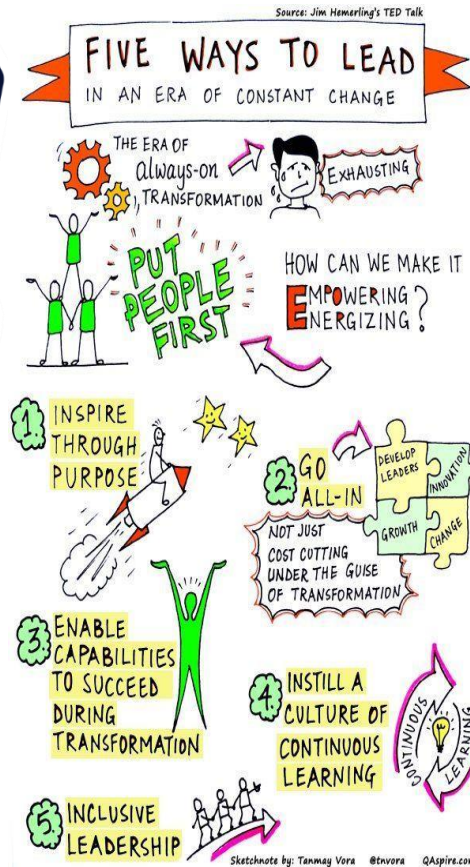 Source: Jim Hemerling's TED Talk
FIVE WAYS TO LEAD
IN AN ERA OF CONSTANT CHANGE
THE ERA OF
always-on
TRANSFORMATION
EXHAUSTING
PUT
PEOPLE
FIRST
HOW CAN WE MAKE IT
EMPOWERING
ENERGIZING?
1. INSPIRE
THROUGH
PURPOSE
2. GO
ALL-IN
DEVELOP
LEADERS
INNOVATION
GROWTH
CHANGE
NOT JUST
COST CUTTING
UNDER THE GUISE
OF TRANSFORMATION
3. ENABLE
CAPABILITIES
TO SUCCEED
DURING
TRANSFORMATION
4. INSTILL A
CULTURE OF
CONTINUOUS
LEARNING
CONTINUOUS
LEARNING
5. INCLUSIVE
LEADERSHIP
Sketchnote by: Tanmay Vora @tnvora QAspire.co